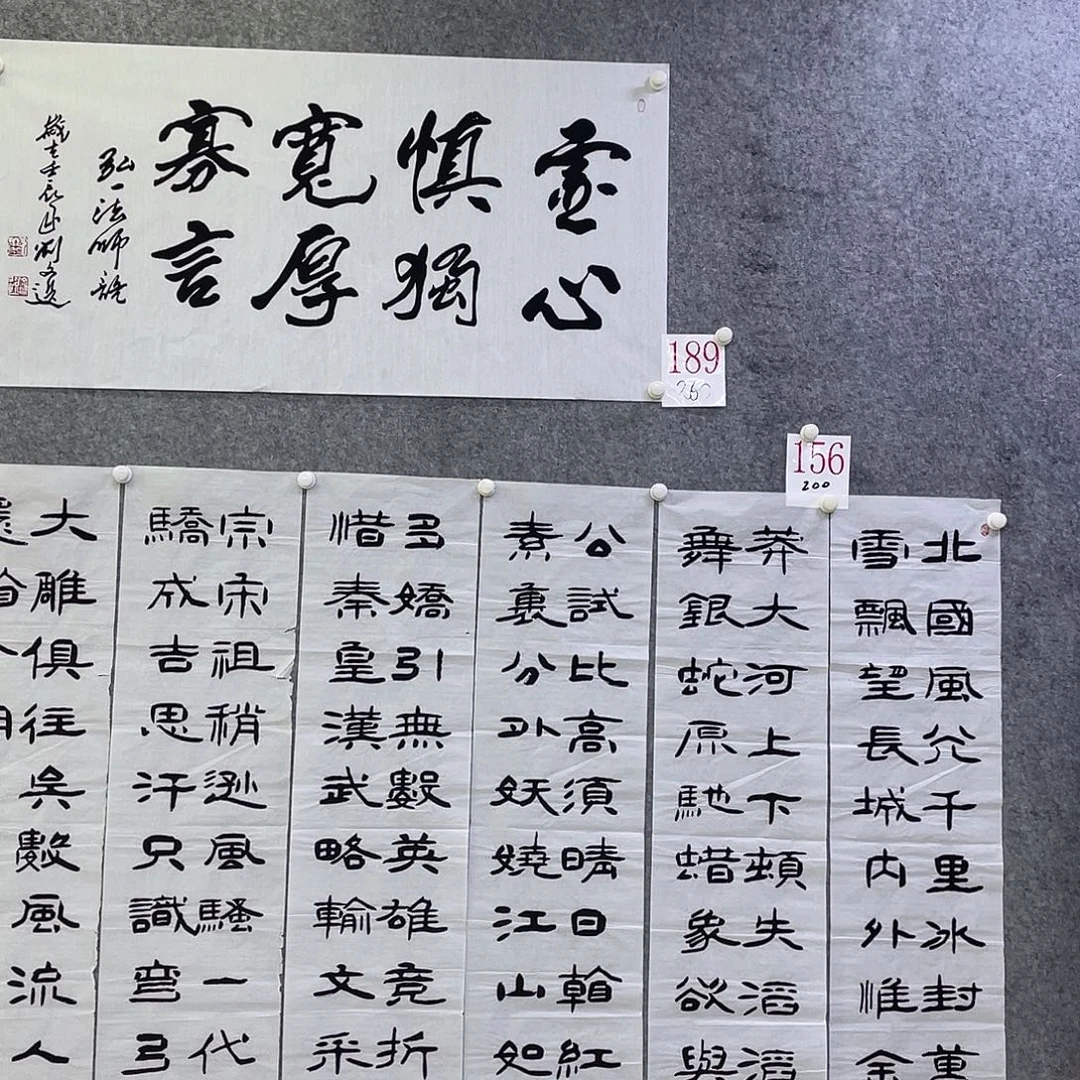 虛心
慎獨
寬厚
寡言
弘一法師語
189
260
156
200
北國風光千里冰封萬
雪飄望長城内外惟余
莽大河上下頓失滔滔
舞銀蛇原馳蜡象欲與
公試比高須晴日看紅
素裹分外妖嬈江山如
多嬌引無數英雄竞折
惜秦皇漢武略輸文采
宗宋祖稍遜風騷一代
驕成吉思汗只識彎弓
大雕俱往矣數風流人